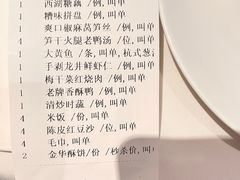 1 西湖藕 /例,叫单
1 糟味拼盘 /例,叫单
1 爽口椒麻莴笋丝 /例,叫单
4 笋干火腿老鸭汤 /位,叫单
1 大黄鱼 /条,叫单,杭式葱
1 手剥龙井鲜虾仁 /例,叫单
1 梅干菜红烧肉 /例,叫单
1 老牌香酥鸭 /例,叫单
1 清炒时蔬 /例,叫单
4 米饭 /份,叫单
4 陈皮红豆沙 /位,叫单
4 毛巾,叫单
2 金华酥饼/份 /秒杀价,叫